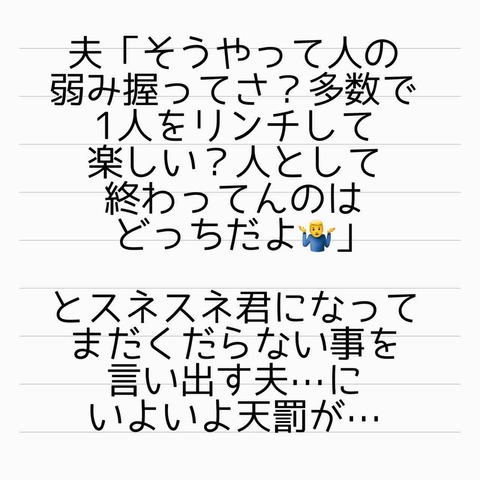 夫「そうやって人の
弱み握ってさ？多数で
1人をリンチして
楽しい？人として
終わってんのは
どっちだよ🤷‍♂️」
とスネスネ君になって
まだくだらない事を
言い出す夫…に
いよいよ天罰が…